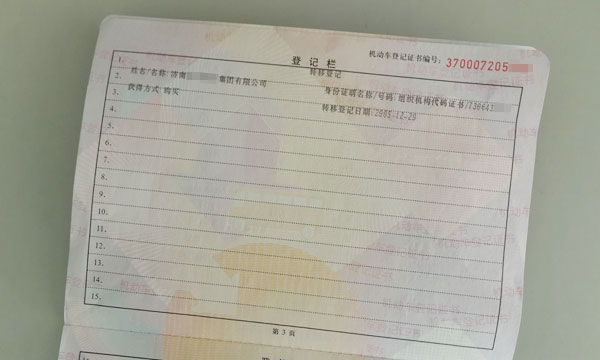 机动车登记证书编号：370007205
登 记 栏
1. 转移登记
2. 姓名/名称:济南 集团有限公司 身份证明名称/号码:组织机构代码证书/738641
3. 获得方式:购买 转移登记日期:2005-12-29
4.
5.
6.
7.
8.
9.
10.
11.
12.
13.
14.
15.
第 3 页